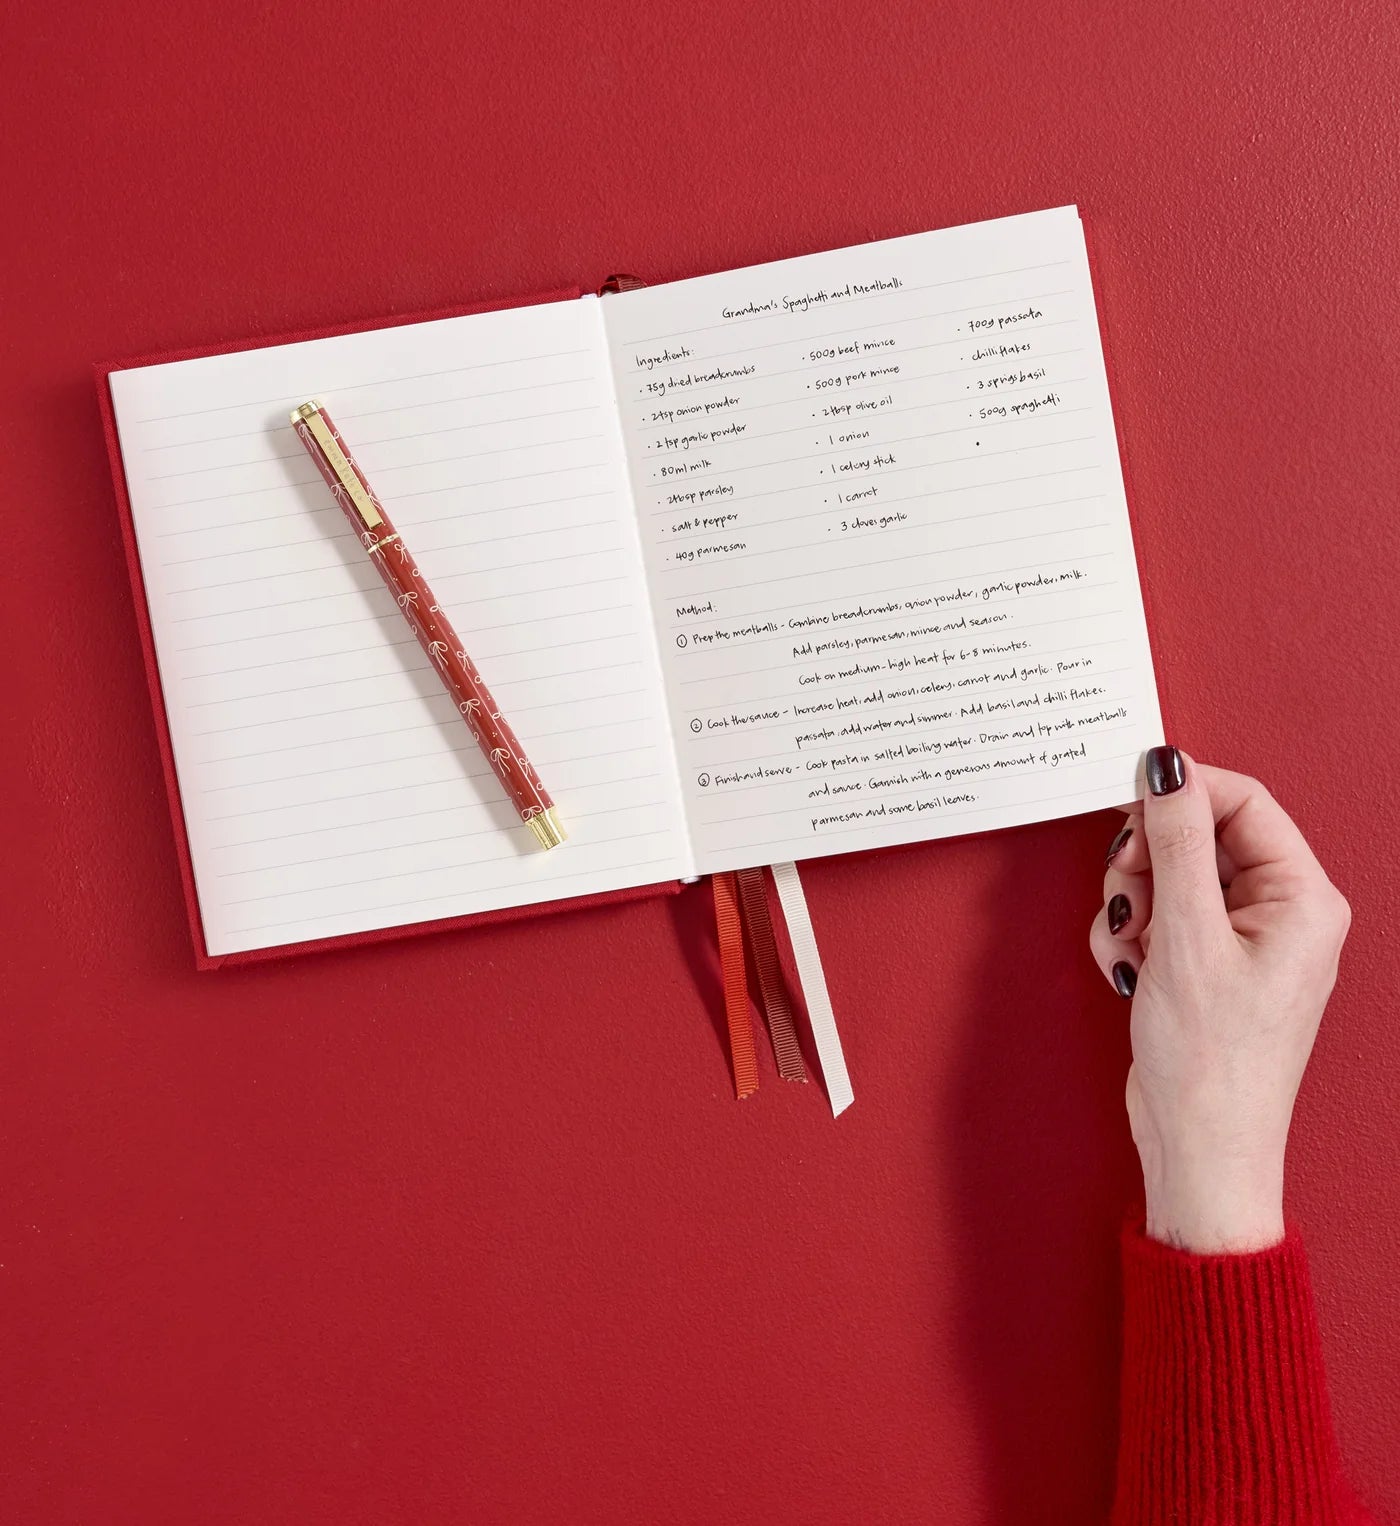 emma kate co.
Grandma's Spaghetti and Meatballs
Ingredients:
· 75g dried breadcrumbs
· 2tsp onion powder
· 2 tsp garlic powder
· 80ml milk
· 2tbsp parsley
· salt & pepper
· 40g parmesan
· 500g beef mince
· 500g pork mince
· 2tbsp olive oil
· 1 onion
· 1 celery stick
· 1 carrot
· 3 cloves garlic
· 700g passata
· chilli flakes
· 3 sprigs basil
· 500g spaghetti
·
Method:
① Prep the meatballs - Combine breadcrumbs, onion powder, garlic powder, milk.
Add parsley, parmesan, mince and season.
Cook on medium-high heat for 6-8 minutes.
② Cook the sauce - Increase heat, add onion, celery, carrot and garlic. Pour in
passata, add water and simmer. Add basil and chilli flakes.
③ Finish and serve - Cook pasta in salted boiling water. Drain and top with meatballs
and sauce. Garnish with a generous amount of grated
parmesan and some basil leaves.